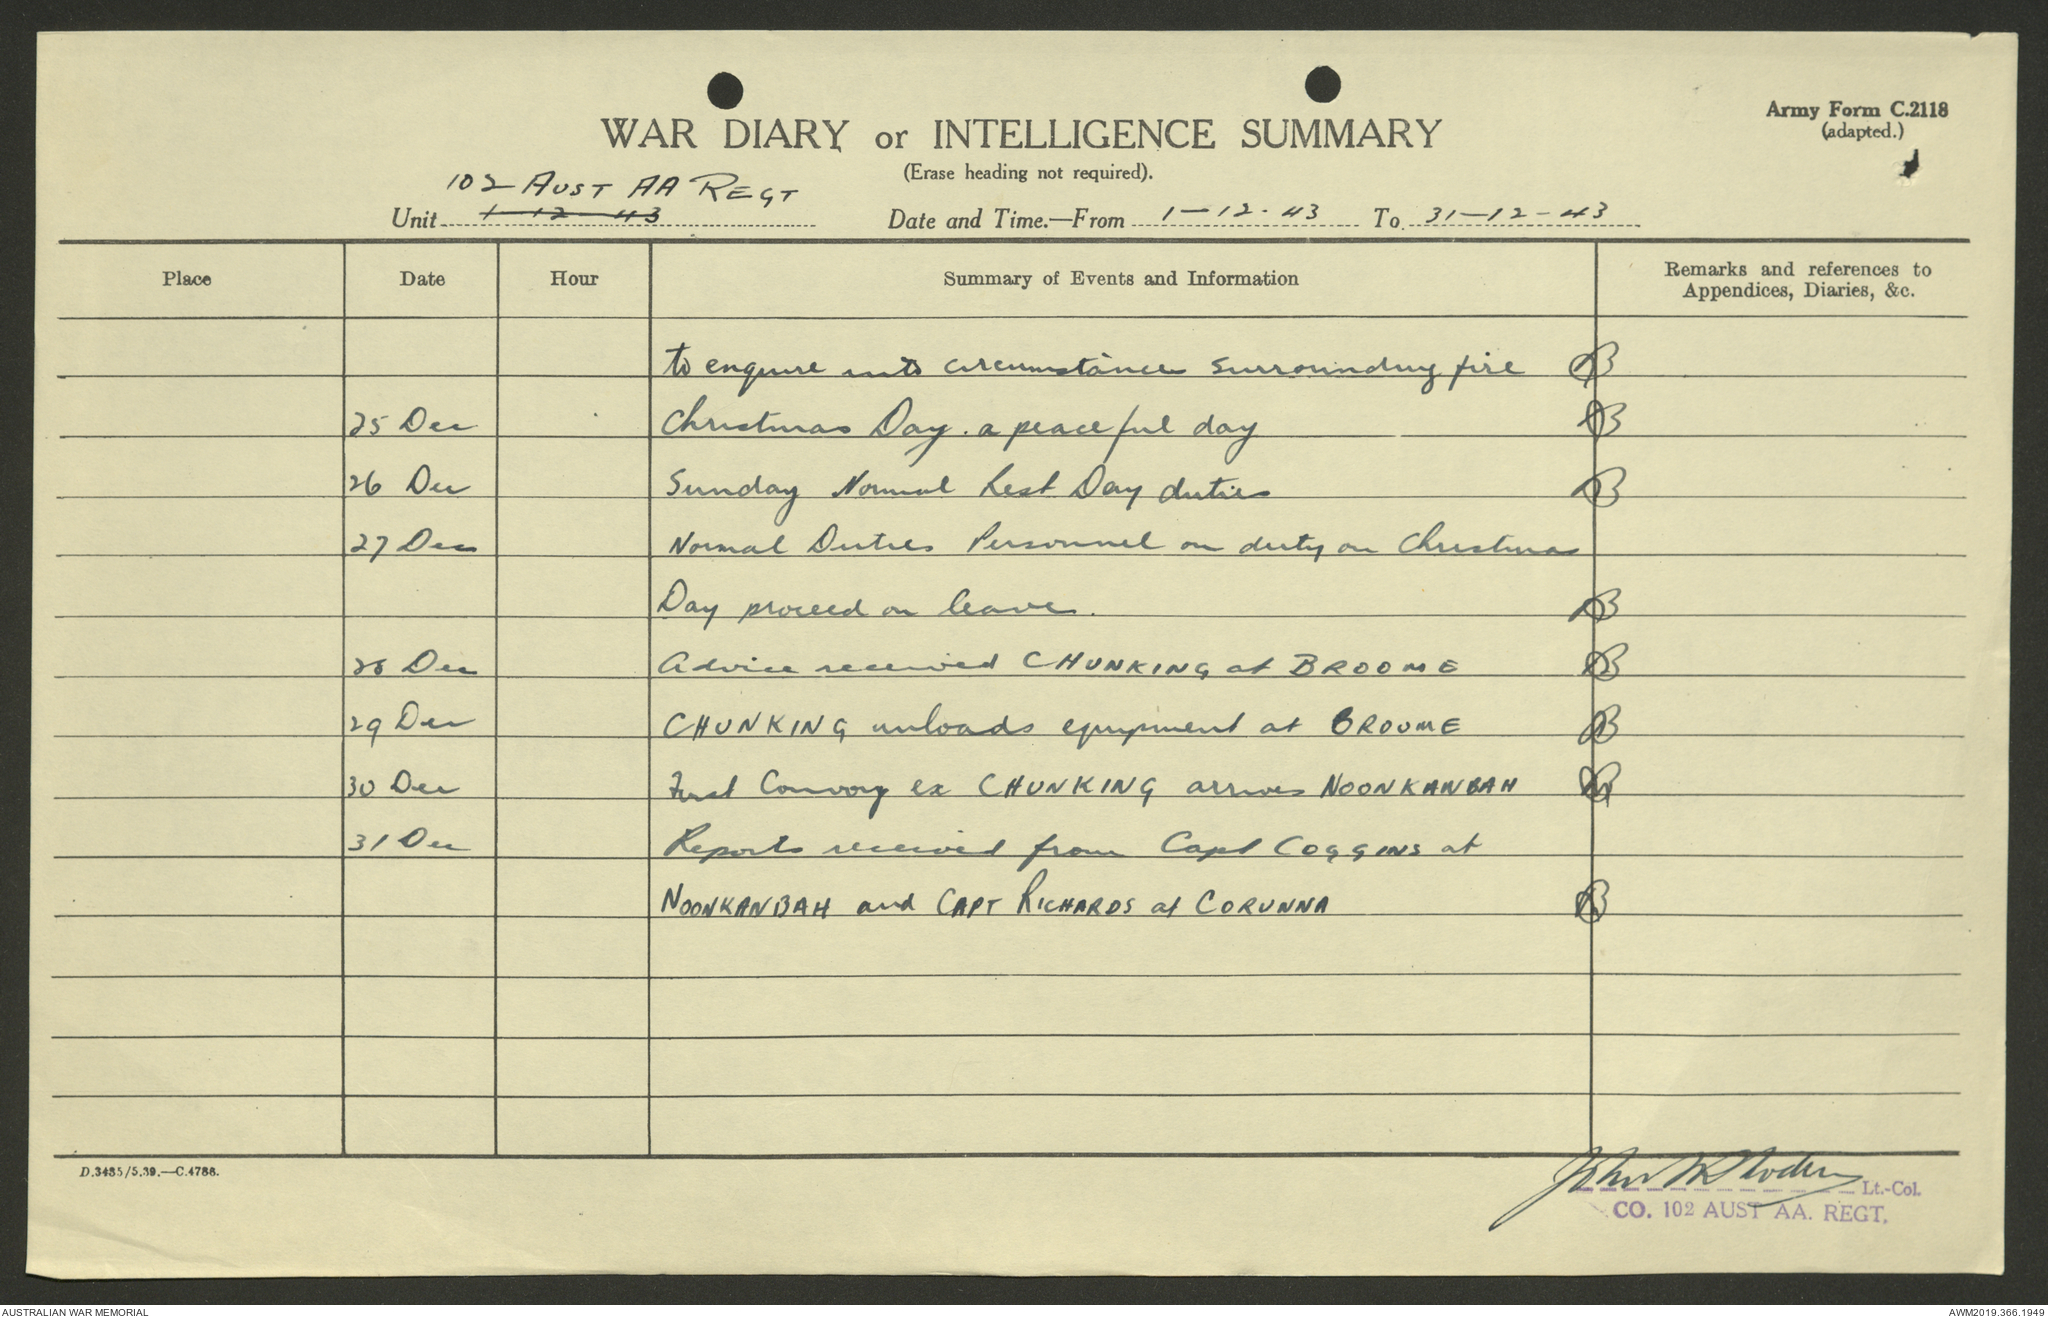 Army Form C.2118
(adapted.)
WAR DIARY or INTELLIGENCE SUMMARY
(Erase heading not required).
102 AUST AA REGT
Unit 1-12-43 Date and Time.—From 1-12-43 To 31-12-43
Place Date Hour Summary of Events and Information Remarks and references to
Appendices, Diaries, &c.
to enquire into circumstances surrounding fire
25 Dec Christmas Day. a peaceful day
26 Dec Sunday Normal Rest Day duties
27 Dec Normal Duties Personnel on duty on Christmas
Day proceed on leave.
28 Dec Advice received CHUNKING at BROOME
29 Dec CHUNKING unloads equipment at BROOME
30 Dec First Convoy ex CHUNKING arrives NOONKANBAH
31 Dec Reports received from Capt COGGINS at
NOONKANBAH and CAPT RICHARDS at CORUNNA
D.3485/5.39.—C.4786.
John Lt.-Col.
CO. 102 AUST AA. REGT.
AUSTRALIAN WAR MEMORIAL AWM2019.366.1949